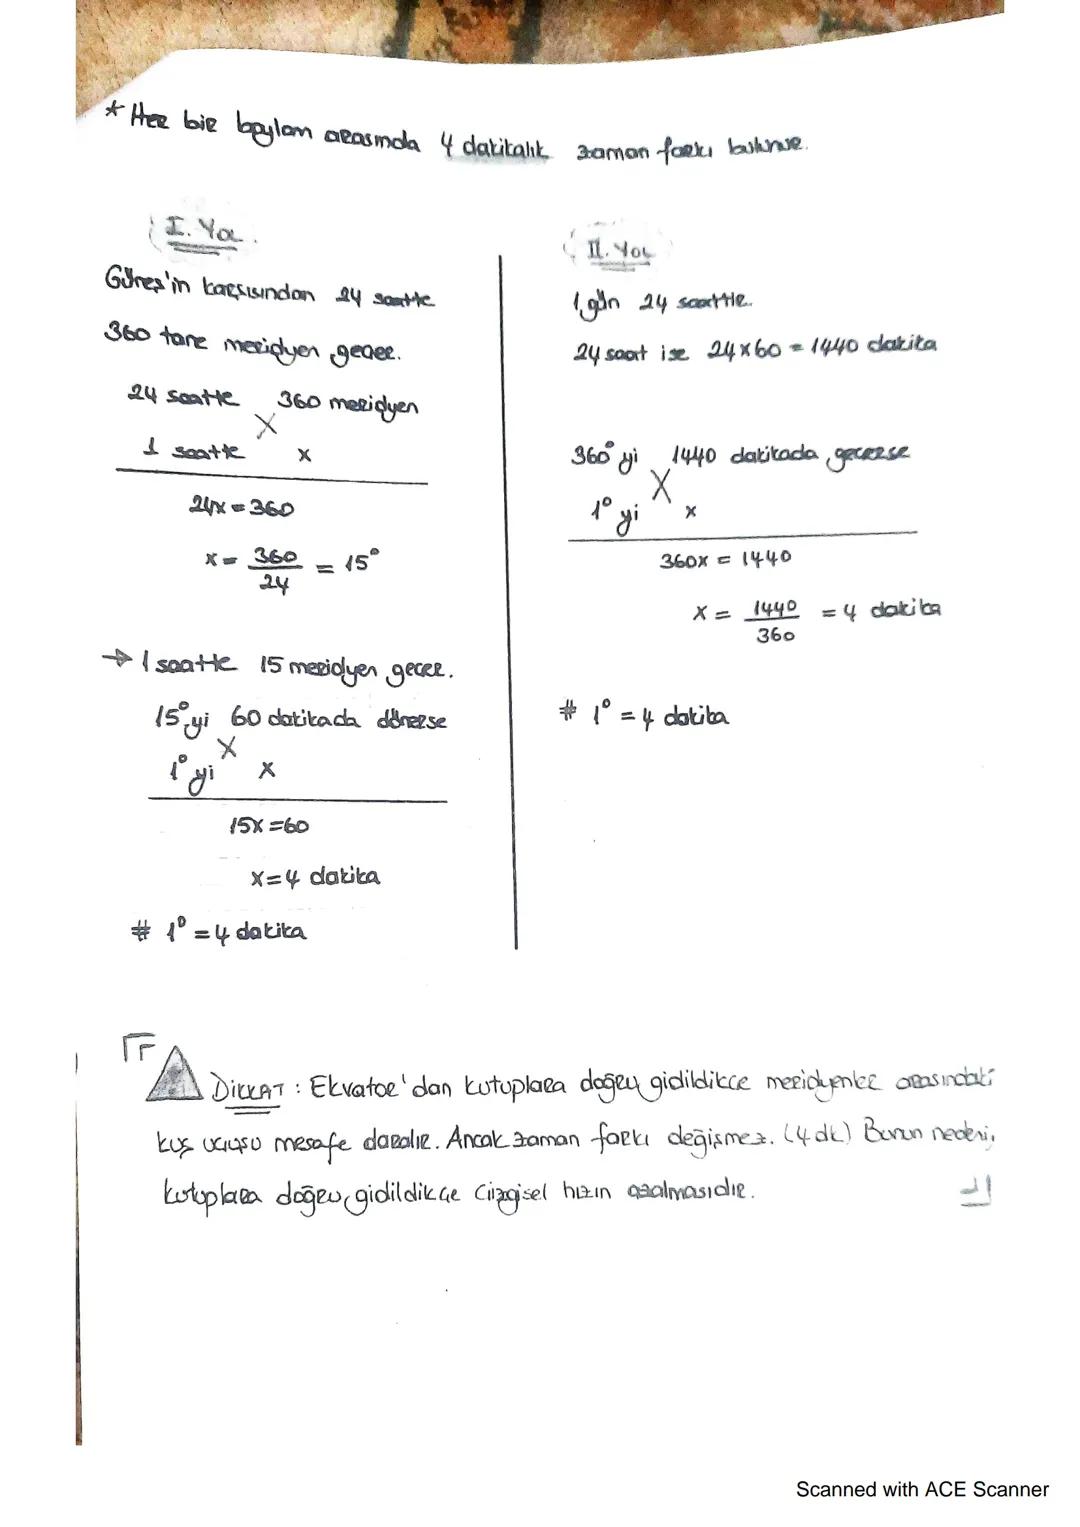 * Her bir boylam arasında 4 dakikalık zaman farkı bulunur.
I. Yol
Güneş'in karşısından 24 saatte
360 tane meridyen geçer.
24 saatte 360 meridyen
X
1 saatte x
24x = 360
x = 360/24 = 15°
→ 1 saatte 15 meridyen geçer.
15°yi 60 dakikada dönerse
X
1°yi x
15x = 60
x = 4 dakika
# 1° = 4 dakika
II. Yol
1 gün 24 saattir.
24 saat ise 24x60 = 1440 dakika
360°yi 1440 dakikada geçerse
X
1°yi x
360x = 1440
x = 1440/360 = 4 dakika
# 1° = 4 dakika
DİKKAT : Ekvator'dan kutuplara doğru gidildikçe meridyenler arasındaki
kuş uçuşu mesafe daralır. Ancak zaman farkı değişmez. (4 dk) Bunun nedeni,
kutuplara doğru gidildikçe çizgisel hızın azalmasıdır.
Scanned with ACE Scanner